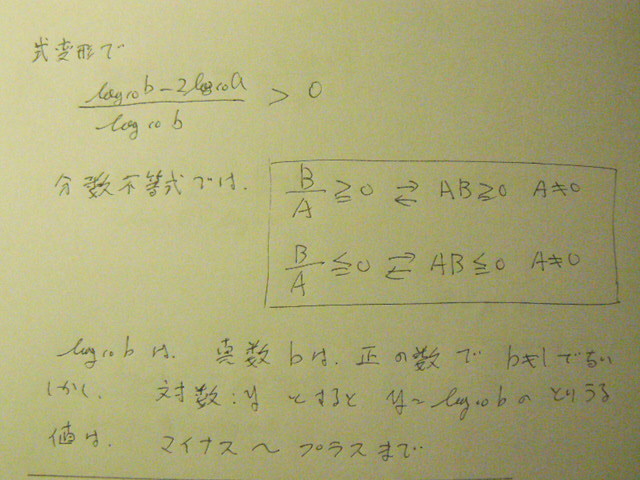 式変形で
log₁₀b − 2log₁₀a / log₁₀b > 0
分数不等式では、
B/A ≧ 0 ⇄ AB ≧ 0 A≠0
B/A ≦ 0 ⇄ AB ≦ 0 A≠0
log₁₀b は、真数 b は、正の数で b≠1でない
しかし、対数:y とすると y=log₁₀b の とりうる
値は、マイナス〜プラスまで